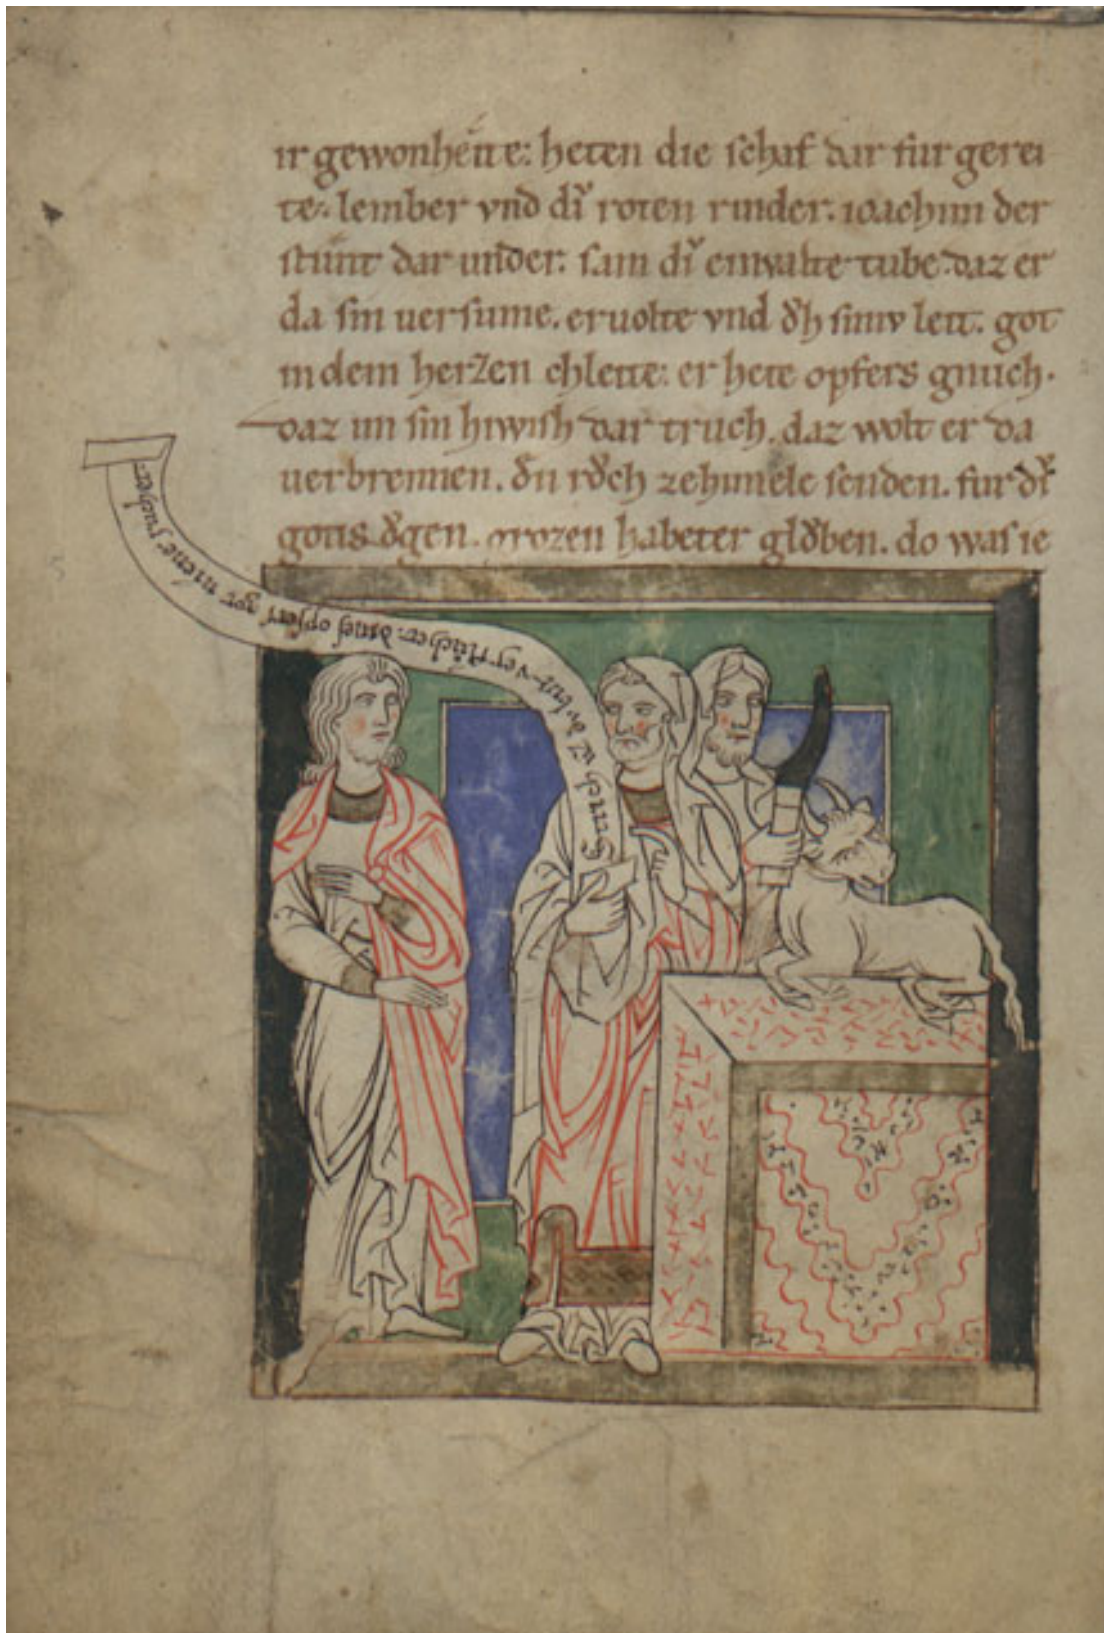 ir gewonheite: heten die schaf dar fur gerei
te. lember vnd di roten rinder. ioachim der
stunt dar under. sam di einvalte tube. daz er
da sin uersume. er uolte vnd oͮh siniv leit. got
in dem herzen chleite: er hete opfers gnuch.
daz im sin hiwish dar truch. daz wolt er da
uerbrennen. den roͮch ze himele senden. fur di
gotis oͮgen. grozen habet er gloͮben. do was ie
Strich uz du bist verfluchet: dines opfers got niene ruochet.